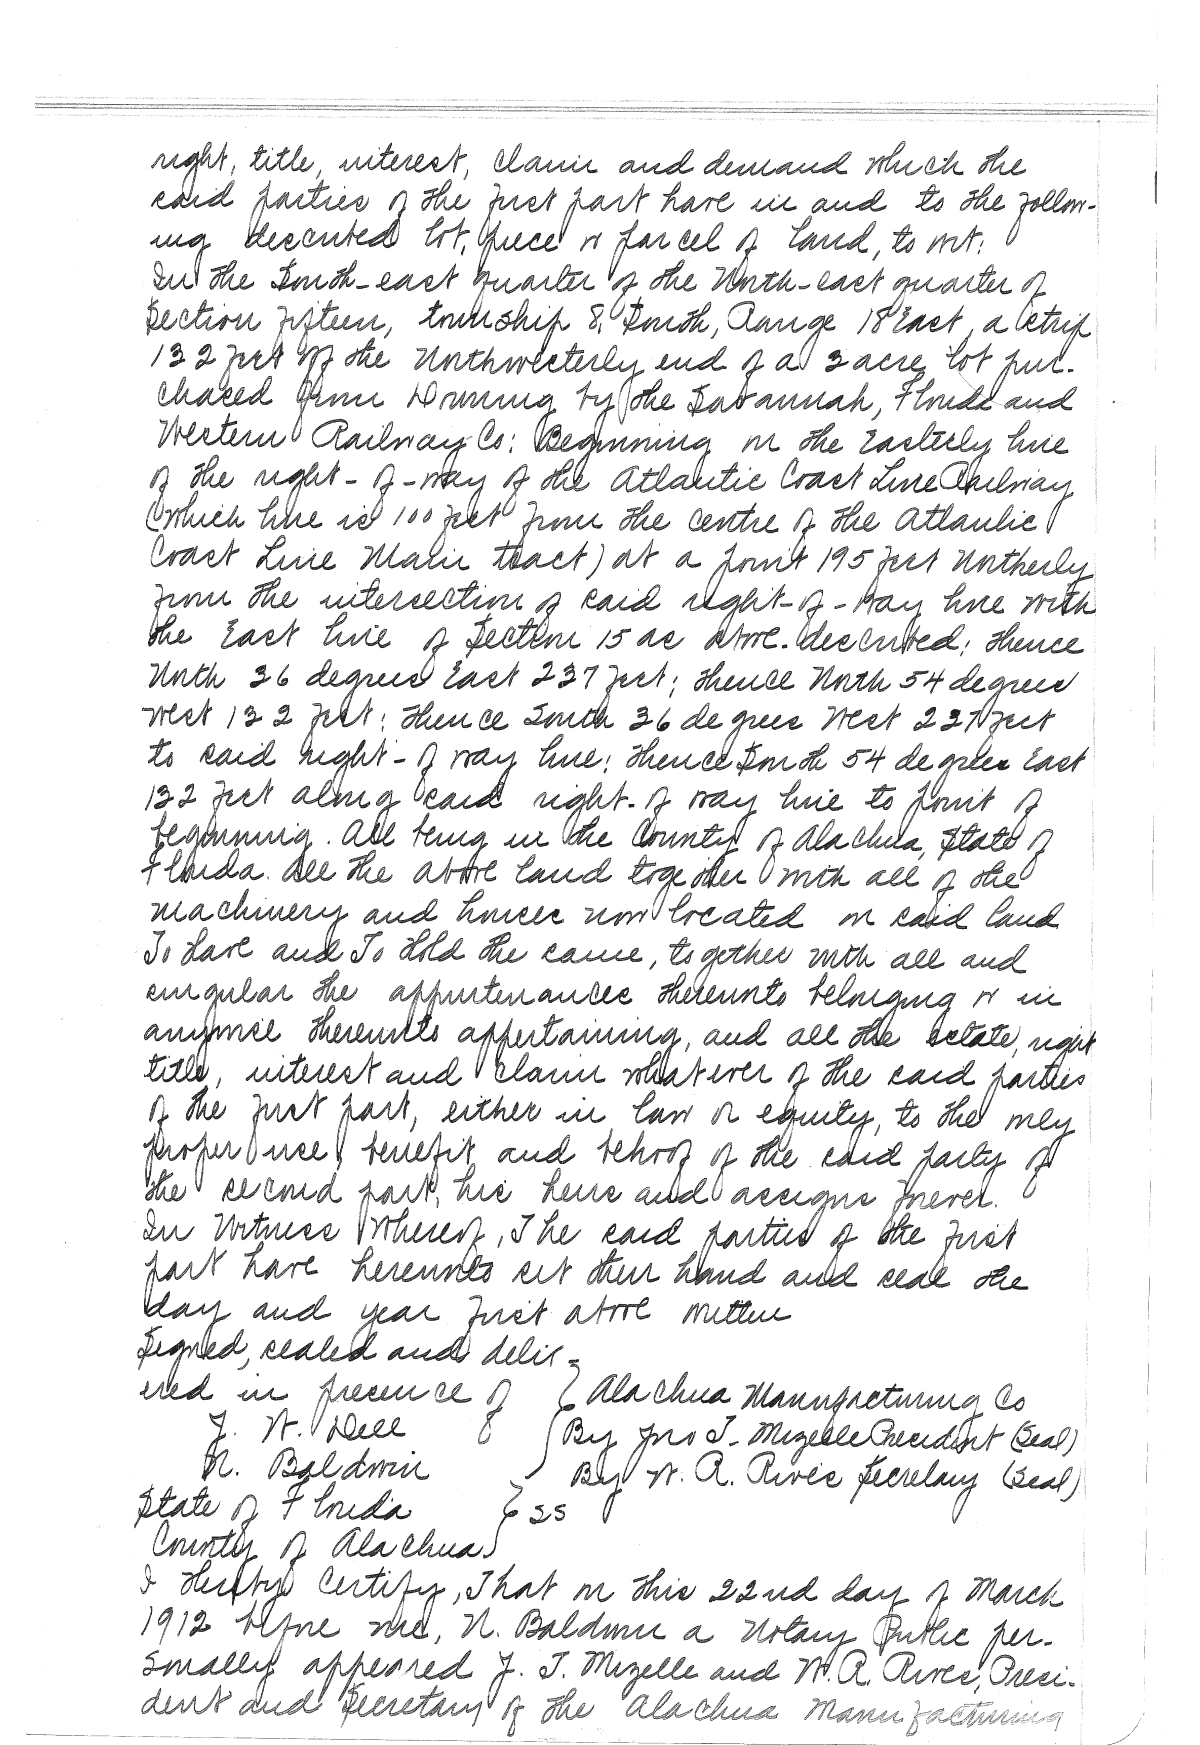 right, title, interest, claim and demand which the
said parties of the first part have in and to the follow-
ing described lot, piece or parcel of land, to wit:
In the South-east quarter of the North-east quarter of
Section fifteen, township 8, South, Range 18 East, a strip
132 feet off the Northwesterly end of a 3 acre lot pur-
chased from Dunning by the Savannah, Florida and
Western Railway Co: Beginning on the Easterly line
of the right-of-way of the Atlantic Coast Line Railway
(which line is 100 feet from the centre of the Atlantic
Coast Line Main tract) at a point 195 feet Northerly
from the intersection of said right-of-way line with
the East line of Section 15 as above described; thence
North 36 degrees East 237 feet; thence North 54 degrees
West 132 feet; thence South 36 degrees West 237 feet
to said right-of way line; thence South 54 degrees East
132 feet along said right-of way line to point of
beginning. All being in the County of Alachua, State of
Florida. All the above land together with all of the
machinery and houses now located on said land
To Have and To Hold the same, together with all and
singular the appurtenances thereunto belonging or in
anywise thereunto appertaining, and all the estate, right
title, interest and claim whatever of the said parties
of the first part, either in law or equity, to the only
proper use, benefit and behoof of the said party of
the second part, his heirs and assigns forever.
In Witness Whereof, The said parties of the first
part have hereunto set their hand and seal the
day and year first above written
Signed, sealed and deliv-
ered in presence of } Alachua Manufacturing Co
J. W. Dell } By Jno T. Mizelle President (Seal)
N. Baldwin By W. R. Rives Secretary (Seal)
State of Florida } SS
County of Alachua
I Hereby Certify, That on this 22nd day of March
1912 before me, N. Baldwin a Notary Public per-
sonally appeared J. T. Mizelle and W. R. Rives, Presi-
dent and Secretary of the Alachua Manufacturing